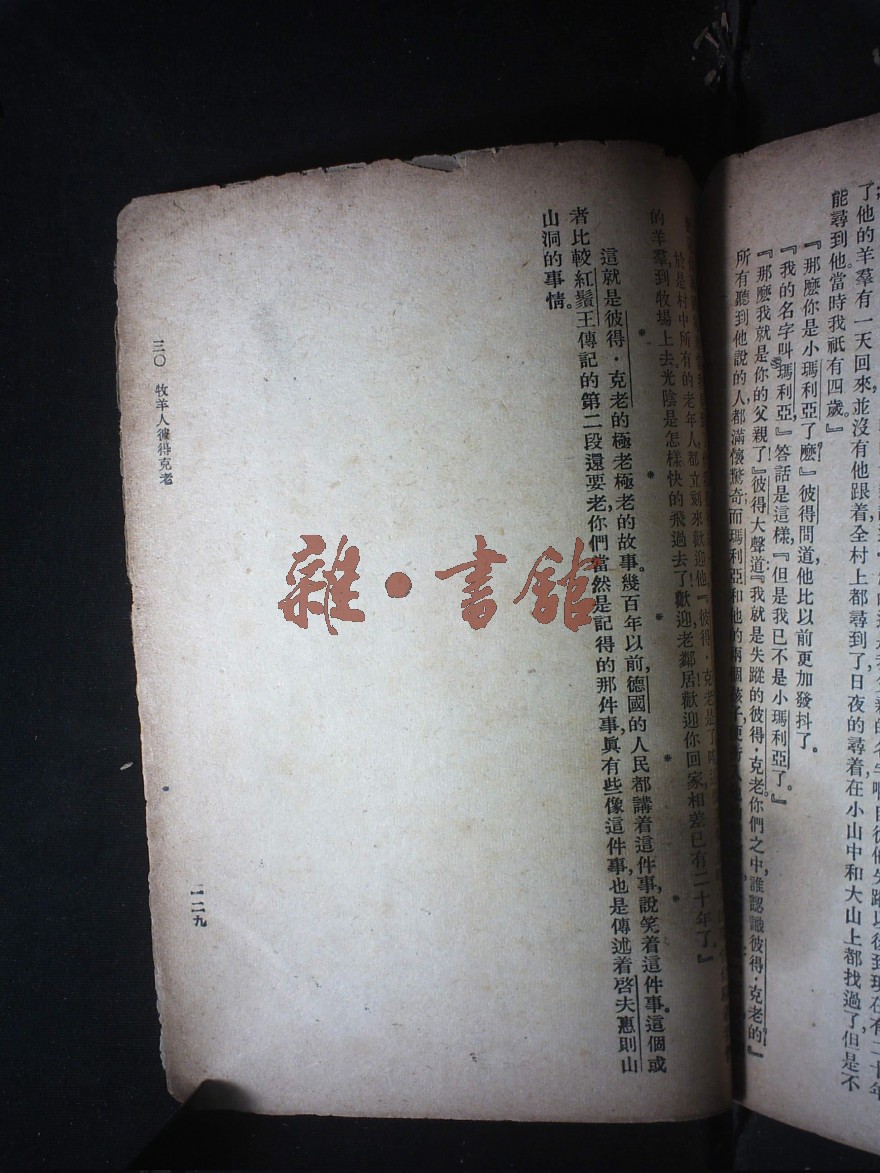 了他的羊羣有一天回來，並沒有他跟着全村上都尋到了，日夜的尋着，在小山中和大山上都找過了，但是不
能尋到他。當時我祇有四歲。』
『那麼你是小瑪利亞了麼？』彼得問道，他比以前更加發抖了。
『我的名字叫瑪利亞，』答話是這樣，『但是我已不是小瑪利亞了。』
『那麼我就是你的父親了！』彼得大聲道：『我就是失蹤的彼得·克老。你們之中，誰認識彼得·克老的？』
所有聽到他說的人，都滿懷驚奇；而瑪利亞和他的兩個孩子，
於是村中所有的老年人，都立刻來歡迎他。『彼得·克老是了
的羊羣到牧場上去。光陰是怎樣快的飛過去了！歡迎，老鄰居！歡迎你回家，相差已有二十年了。』
這就是彼得·克老的極老極老的故事。幾百年以前，德國的人民都講着這件事，說笑着這件事。這個或
者比較紅鬚王傳記的第二段還要老，你們當然是記得的，那件事眞有些像這件事，也是傳述着啓夫惠則山
山洞的事情。
三〇 牧羊人彼得克老
一二九
雜·書館